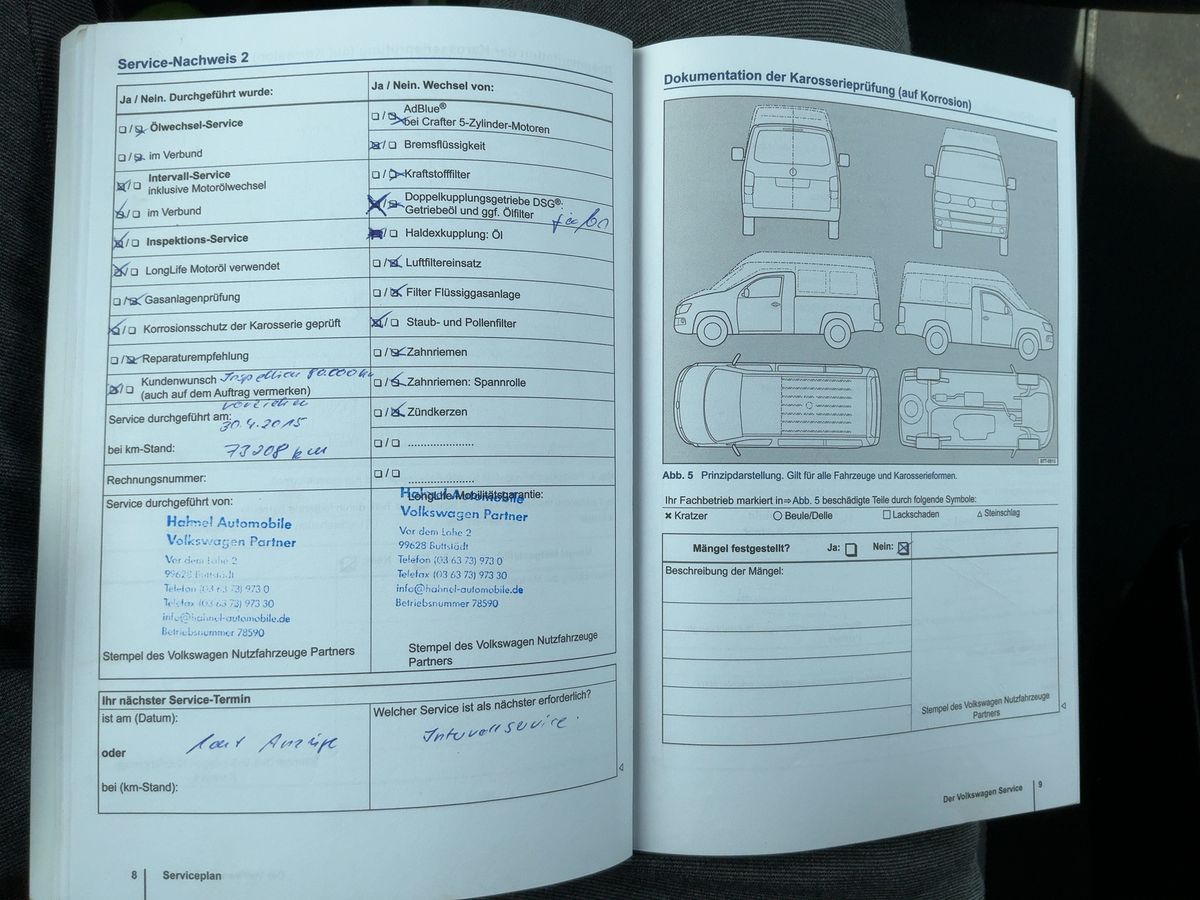 Service-Nachweis 2
Ja / Nein. Durchgeführt wurde:
Ölwechsel-Service
im Verbund
Intervall-Service
inklusive Motorölwechsel
im Verbund
Inspektions-Service
LongLife Motoröl verwendet
Gasanlagenprüfung
Korrosionsschutz der Karosserie geprüft
Reparaturempfehlung
Kundenwunsch Inspektion 80.000 km
(auch auf dem Auftrag vermerken)
Service durchgeführt am: 30.4.2015
bei km-Stand: 73208 km
Rechnungsnummer:
Service durchgeführt von:
Hahnel Automobile
Volkswagen Partner
Vor dem Lohe 2
99628 Buttstädt
Telefon (03 63 73) 973 0
Telefax (03 63 73) 973 30
info@hahnel-automobile.de
Betriebsnummer 78590
Stempel des Volkswagen Nutzfahrzeuge Partners
Ja / Nein. Wechsel von:
AdBlue®
bei Crafter 5-Zylinder-Motoren
Bremsflüssigkeit
Kraftstofffilter
Doppelkupplungsgetriebe DSG®:
Getriebeöl und ggf. Ölfilter
Haldexkupplung: Öl
Luftfiltereinsatz
Filter Flüssiggasanlage
Staub- und Pollenfilter
Zahnriemen
Zahnriemen: Spannrolle
Zündkerzen
......................
......................
LongLife Mobilitätsgarantie:
Hahnel Automobile
Volkswagen Partner
Vor dem Lohe 2
99628 Buttstädt
Telefon (03 63 73) 973 0
Telefax (03 63 73) 973 30
info@hahnel-automobile.de
Betriebsnummer 78590
Stempel des Volkswagen Nutzfahrzeuge
Partners
Ihr nächster Service-Termin
ist am (Datum):
oder laut Anzeige
bei (km-Stand):
Welcher Service ist als nächster erforderlich?
Intervallservice.
8 Serviceplan
Dokumentation der Karosserieprüfung (auf Korrosion)
Abb. 5 Prinzipdarstellung. Gilt für alle Fahrzeuge und Karosserieformen.
Ihr Fachbetrieb markiert in⇒Abb. 5 beschädigte Teile durch folgende Symbole:
Kratzer Beule/Delle Lackschaden Steinschlag
Mängel festgestellt? Ja: Nein:
Beschreibung der Mängel:
Stempel des Volkswagen Nutzfahrzeuge
Partners
Der Volkswagen Service 9